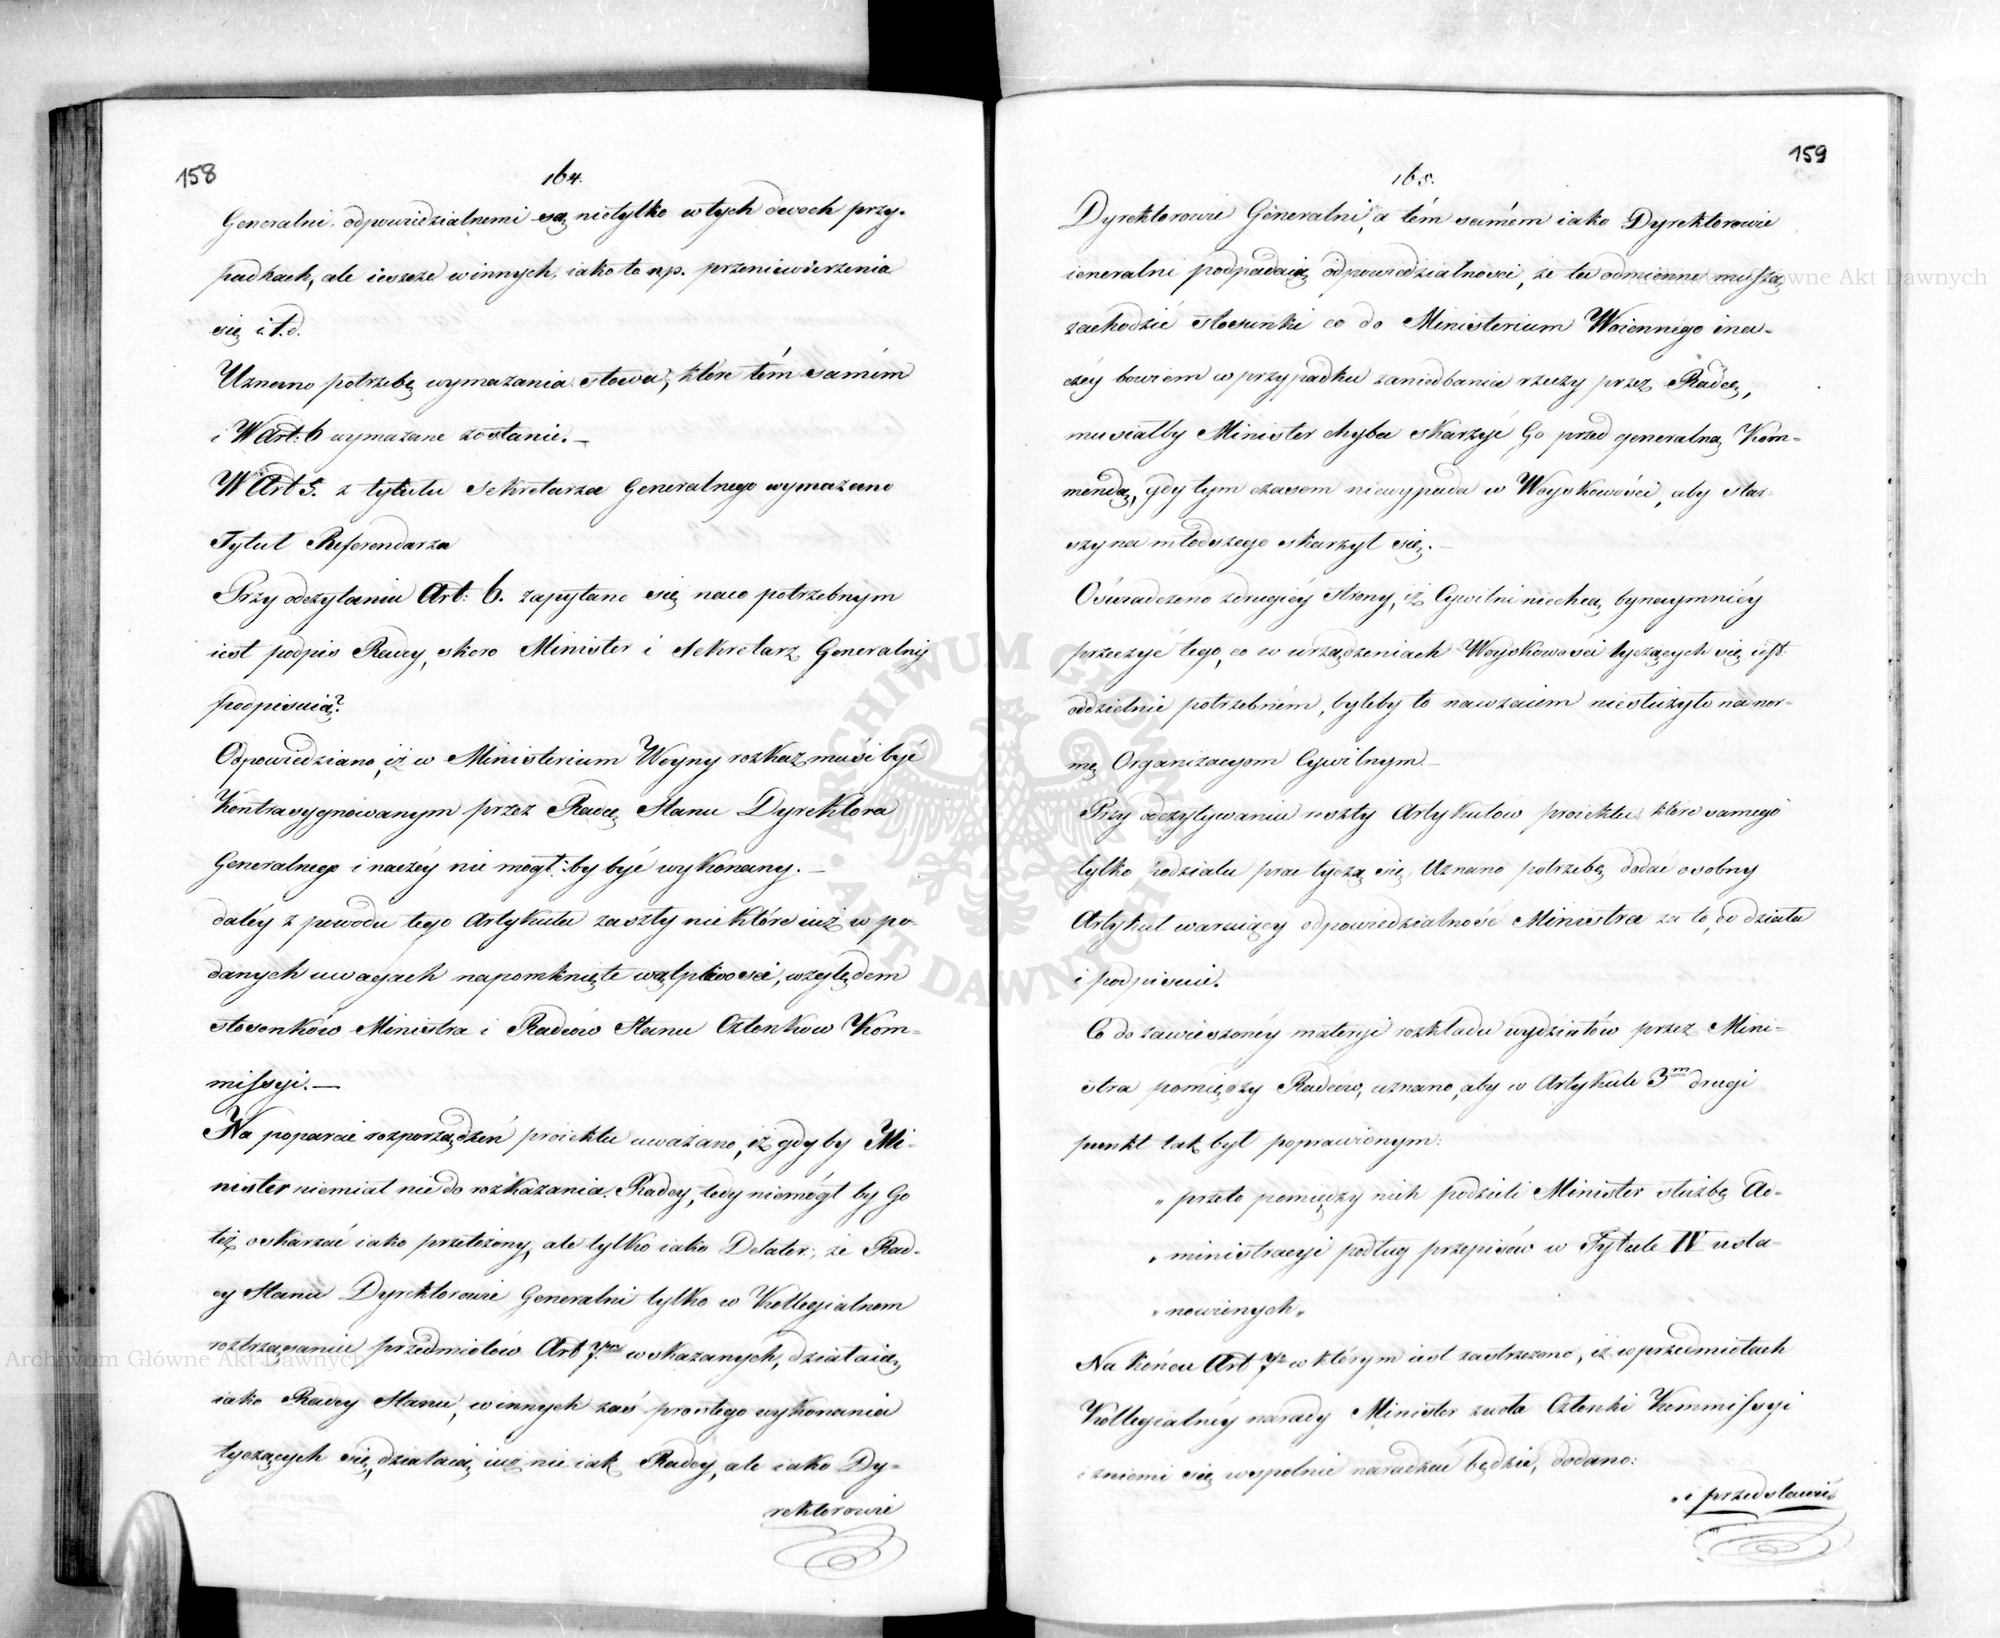 158
164.
Generalni odpowiedzialnemi są nietylko w tych dwóch przy-
padkach, ale ieszcze w innych, iako to np. przeniewierzenia
się i t.d.
Uznano potrzebę wymazania słowa, które tém samém
i W Art: 6 wymazane zostanie.—
W Art 5. z tytułu Sekretarza Generalnego wymazano
Tytuł Referendarza
Przy odczytaniu Art: 6. zapytano się naco potrzebnym
iest podpis Radcy, skoro Minister i Sekretarz Generalny
podpisuią?
Odpowiedziano, iż w Ministerium Woyny rozkaz musi być
Kontrasygnowanym przez Radcę Stanu Dyrektora
Generalnego inaczéy nie mógł by być wykonany.—
daléy z powodu tego Artykułu zaszły niektóre iuż w po-
danych uwagach napomknięte wątpliwości, względem
stosonków Ministra i Radców Stanu Członków Kom-
missyi.—
Na poparcie rozporządzeń proiektu uważano, iż gdyby Mi-
nister niemiał nic do rozkazania Radcy, tedy niemógł by Go
też oskarżać iako przełożony, ale tylko iako Delator; że Rad-
cy Stanu Dyrektorowie Generalni tylko w Kollegialnem
roztrząsaniu przedmiotów Art 7mo wskazanych, działaią
iako Radcy Stanu, w innych zaś prostego wykonania
tyczących się, działaią iuż nie iak Radcy, ale iako Dy-
rektorowie
159
165.
Dyrektorowie Generalni, a tém samém iako Dyrektorowie
ieneralni podpadaią odpowiedzialności, że tu odmienne muszą
zachodzić stosunki co do Ministerium Woiennego ina-
czéy bowiem w przypadku zaniedbania rzeczy przez Radcę,
musiałby Minister chyba skarżyć Go przed generalną Kom-
mendą, gdy tym czasem niewypada w Woyskowości, aby star-
szy na młodszego skarżył się.—
Oświadczono zdrugiéy strony, iż Cywilni niechcą bynaymniéy
przeczyć tego, co w urządzeniach Woyskowości tyczących się iest
oddzielnie potrzebném, byleby to nawzaiem niesłużyło na nor-
mę Organizacyom Cywilnym—
Przy odczytywaniu reszty Artykułów proiektu, które samego
tylko podziału prac tyczą się, Uznano potrzebę dodać osobny
Artykuł waruiący odpowiedzialność Ministra za to, co działa
i podpisuie.
Co do zawieszonéy materyi rozkładu wydziałów przez Mini-
stra pomiędzy Radców, uznano, aby w Artykule 3m drugi
punkt tak był poprawionym:
„ przeto pomiędzy nich podzieli Minister służbę Ad-
„ ministracyi podług przepisów w Tytule IV usta-
„ nowionych„
Na końcu Art 7o w którym iest zastrzeżono, iż w przedmiotach
Kollegialnéy narady Minister zwoła Członki Kommissyi
i zniemi się wspolnie naradzać będzie, dodano:
„i przedstawić